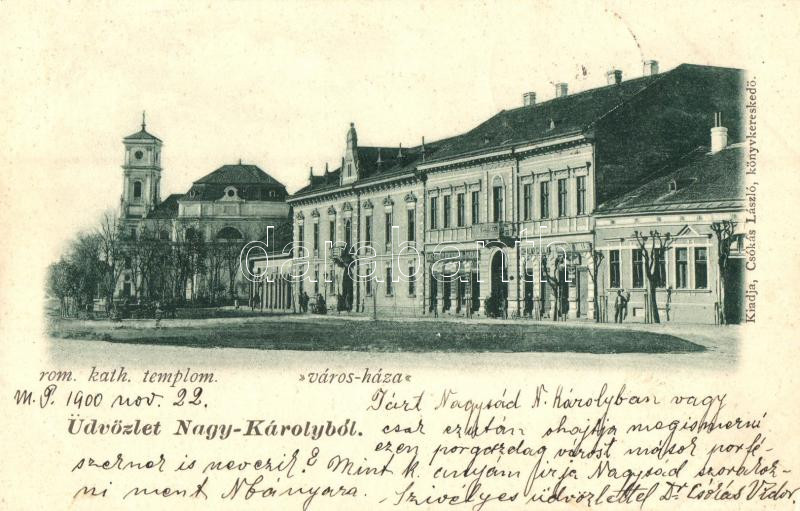 Kiadja, Csókás László, könyvkereskedő.
darabanth
rom. kath. templom.
»város-háza«
M. P. 1900 nov. 22.
Üdvözlet Nagy-Károlyból.
Járt Nagysád N. Károlyban vagy
csak ezután óhajtja megismerni
ezen porgazdag várost mások porfé-
szeknek is nevezik? Mint k. anyám írja Nagysád szórakoz-
ni ment Nbányára.
Szívélyes üdvözlettel Dr Csókás Vidor.